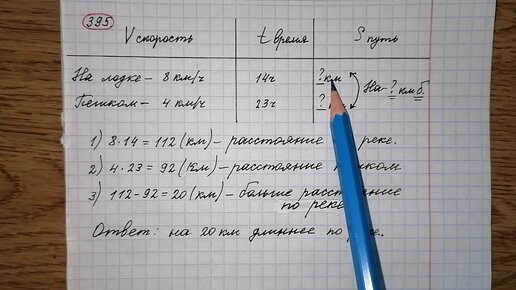 395
V скорость t время S путь
На лодке – 8 км/ч 14ч ? км На ? км б.
Пешком – 4 км/ч 23ч ?
1) 8·14 = 112 (км) – расстояние реке.
2) 4·23 = 92 (км) – расстояние
3) 112-92 = 20 (км) – больше расстояние
по реке
Ответ: на 20 км длиннее по